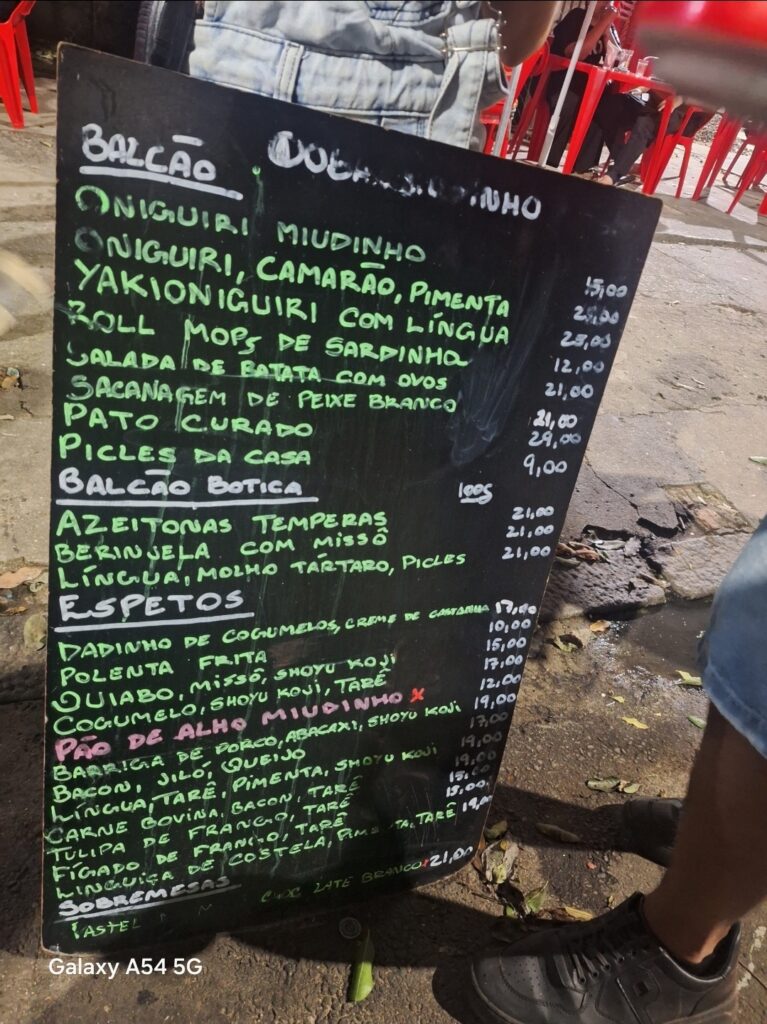 BALCÃO
ONIGUIRI MIUDINHO 15,00
ONIGUIRI, CAMARÃO, PIMENTA 25,00
YAKIONIGUIRI COM LÍNGUA 25,00
ROLL MOPS DE SARDINHA 12,00
SALADA DE BATATA COM OVOS 21,00
SACANAGEM DE PEIXE BRANCO 21,00
PATO CURADO 29,00
PICLES DA CASA 9,00
BALCÃO BOTICA 100g
AZEITONAS TEMPERAS 21,00
BERINJELA COM MISSÔ 21,00
LÍNGUA, MOLHO TÁRTARO, PICLES 21,00
ESPETOS
DADINHO DE COGUMELOS, CREME DE CASTANHA 17,00
POLENTA FRITA 10,00
QUIABO, MISSÔ, SHOYU KOJI 15,00
COGUMELO, SHOYU KOJI, TARÊ 17,00
PÃO DE ALHO MIUDINHO x 12,00
BARRIGA DE PORCO, ABACAXI, SHOYU KOJI 19,00
BACON, JILÓ, QUEIJO 17,00
LÍNGUA, TARÊ, PIMENTA, SHOYU KOJI 19,00
CARNE BOVINA, BACON, TARÊ 19,00
TULIPA DE FRANGO, TARÊ 15,00
FÍGADO DE FRANGO, TARÊ 15,00
LINGUIÇA DE COSTELA, PIMENTA, TARÊ 19,00
SOBREMESAS
BRANCO x 21,00
Galaxy A54 5G